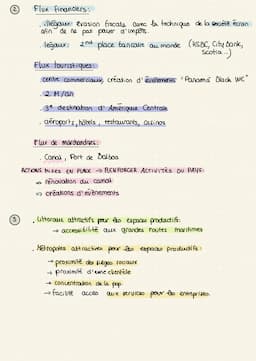 ② Flux financiers:
. illégaux: évasion fiscale avec la technique de la société écran
afin de ne pas payer d'impôts.
. légaux: 2nd place bancaire au monde (HSBC, City bank,
Scotia...)
Flux touristiques:
. centre commerciaux, création d'évènements "Panama Black WE"
. 2 M/an
. 3e destination d'Amérique Centrale
. aéroports, hôtels, restaurants, casinos
Flux de marchandises:
. Canal, Port de Balboa
ACTIONS MISES EN PLACE → RENFORCER ACTIVITÉS DU PAYS:
⇒ rénovation du canal
⇒ créations d'évènements
③ . Littoraux attractifs pour les espaces productifs:
→ accessibilité aux grandes routes maritimes
. Métropoles attractives pour les espaces productifs:
→ proximité des sièges sociaux
→ proximité d'une clientèle
→ concentration de la pop.
→ facilité accès aux services pour les entreprises.